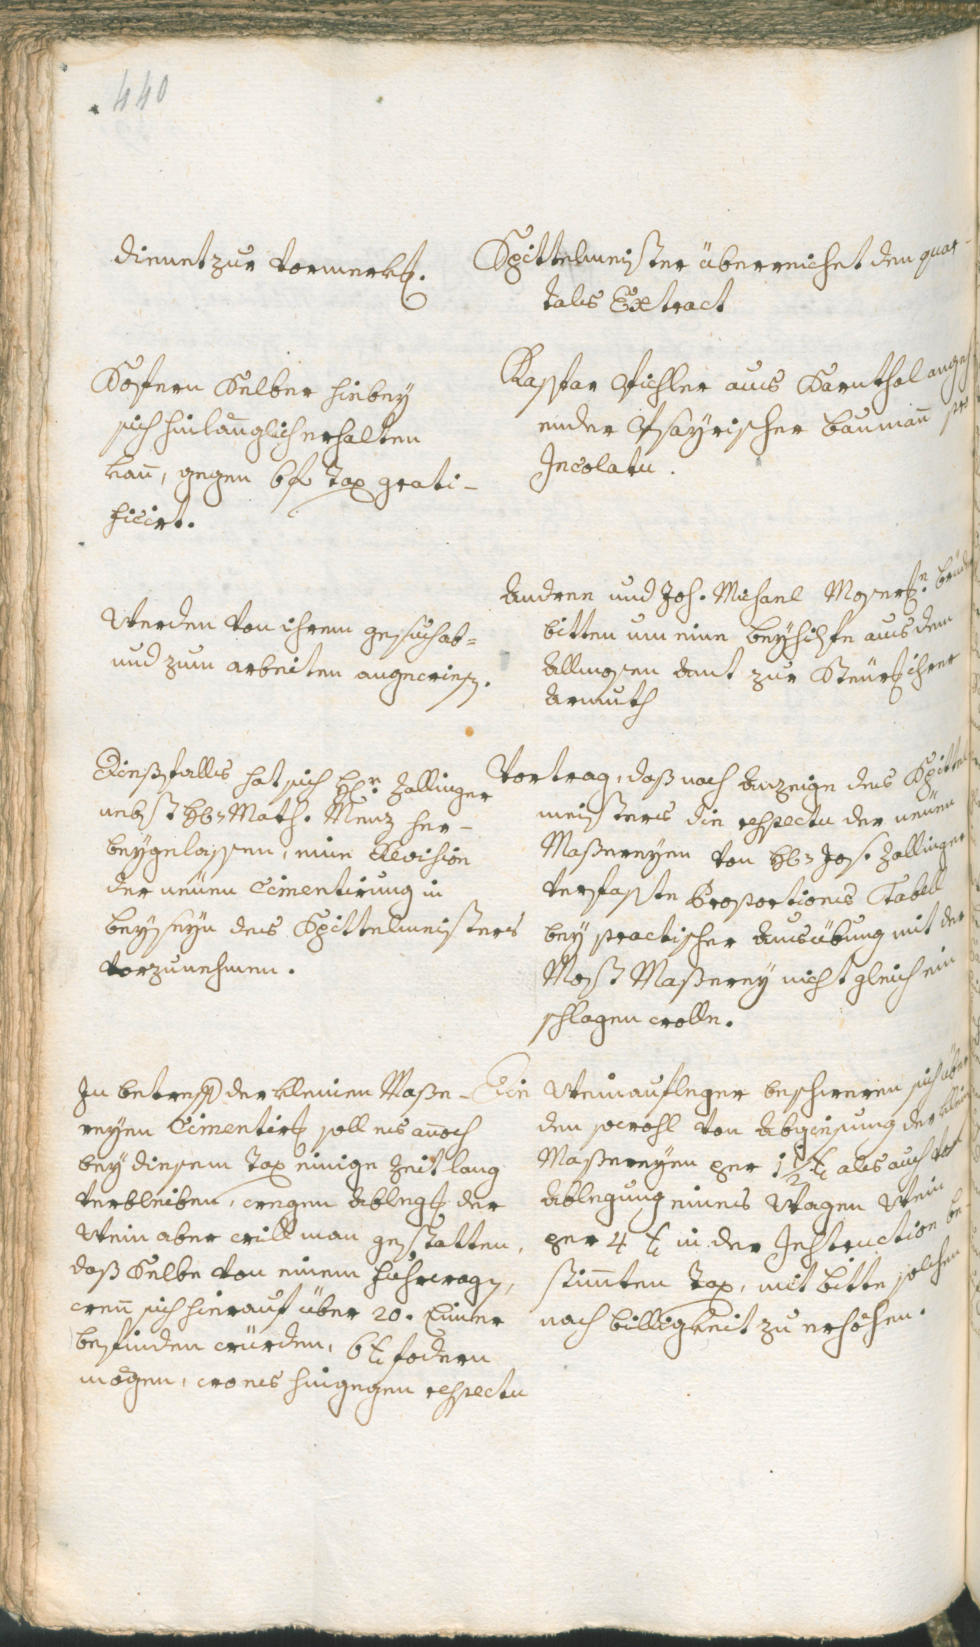 440
dienet zur vormerkhg.
Spittelmeister überreichet den quar
tals Extract
Sofern Selber hiebey
sich hinlänglich erhalten
kan̄, gegen 6 f Tax grati-
ficirt.
Caspar Pichler aus Sarnthal
ender Psayrischer Bauman̄
Incolatu.
Werden von ihrem gesuch ab-
und zum arbeiten angewiesen.
Andree und Joh. Michael Moser
bitten um eine beyhilfe aus dem
Allmosen Amt zur Steur ihrer
Armuth
Diesfalls hat sich Hr. Zallinger
nebst H. Math. Menz her-
beygelassen, eine Revision
der neuen Cimentirung in
beyseyn des Spittelmeisters
vorzunehmen.
Vortrag, daß nach Anzeige des Spittel
meisters die respectu der neuen
Maßereyen von H. Jos. Zallinger
verfaßte Proportions Tabell
bey practischer Ausübung mit der
Most Maßerey nicht gleich ein
schlagen wolle.
In betreff der kleinen Maße-
reyen Cimentirg soll es an̄och
bey diesem Tax einige Zeit lang
verbleiben, wegen Ablegg der
Wein aber will man gestatten,
daß Selbe von einem Fuhrwagen,
wen̄ sich hierauf über 20. Eimer
befinden würden, 6 fodern
mögen, wo es hingegen respectu
Die Weinaufleger beschweren sich über
den sowohl von Abgiesung der klein
Maßereyen per 1½ als auch von
Ablegung eines Wagen Wein
per 4 in der Instruction be-
stim̄ten Tax, mit bitte solchen
nach billigkeit zu erhöhen.